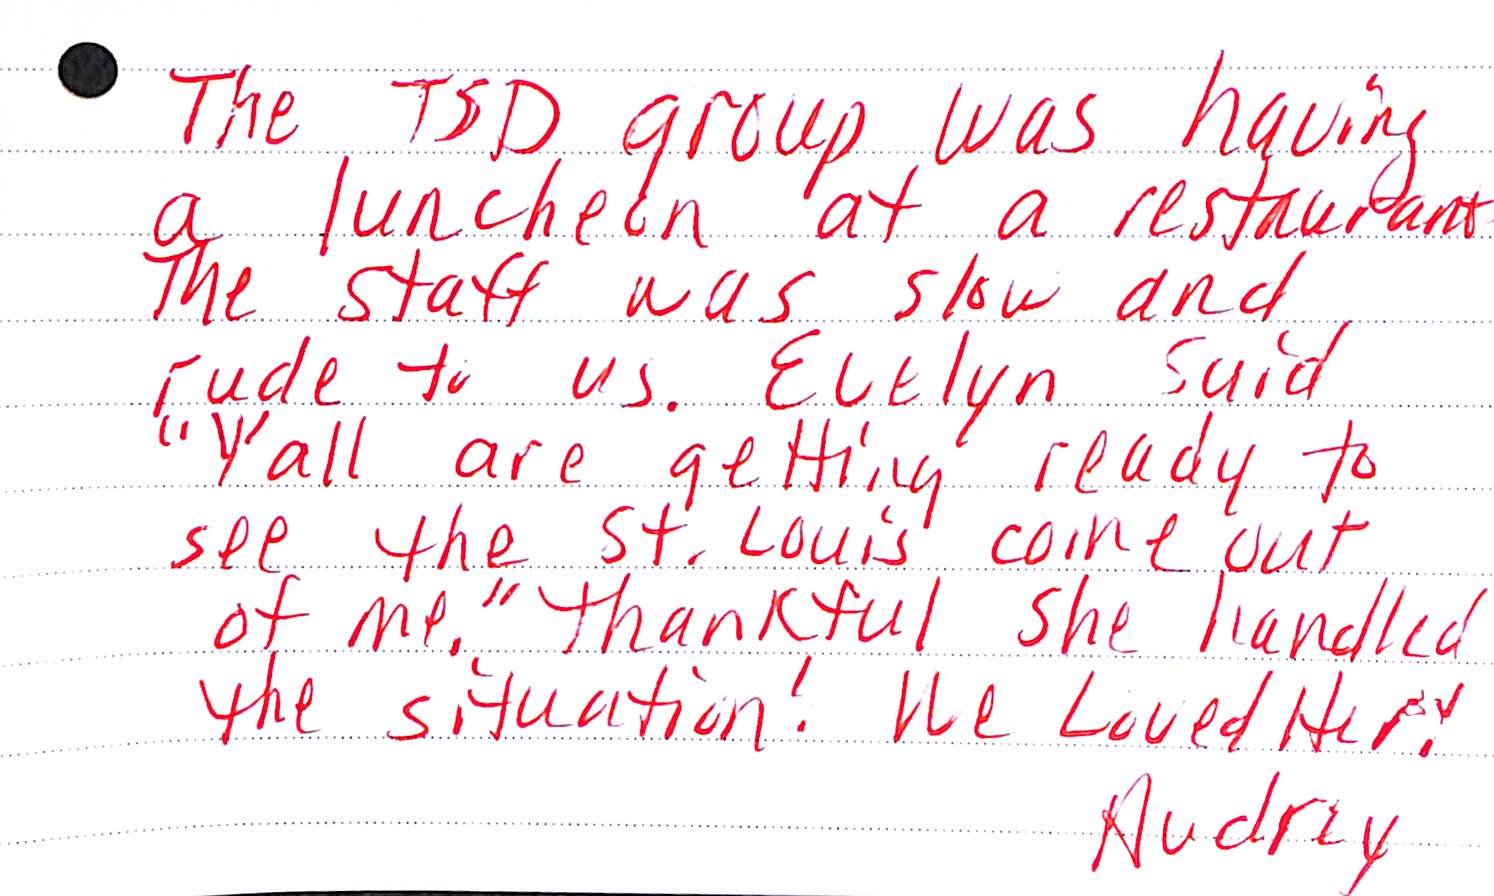 The TSD group was having
a luncheon at a restaurant.
The staff was slow and
rude to us. Evelyn said
"Y'all are getting ready to
see the St. Louis come out
of me." Thankful she handled
the situation! We Loved Her!
Audrey